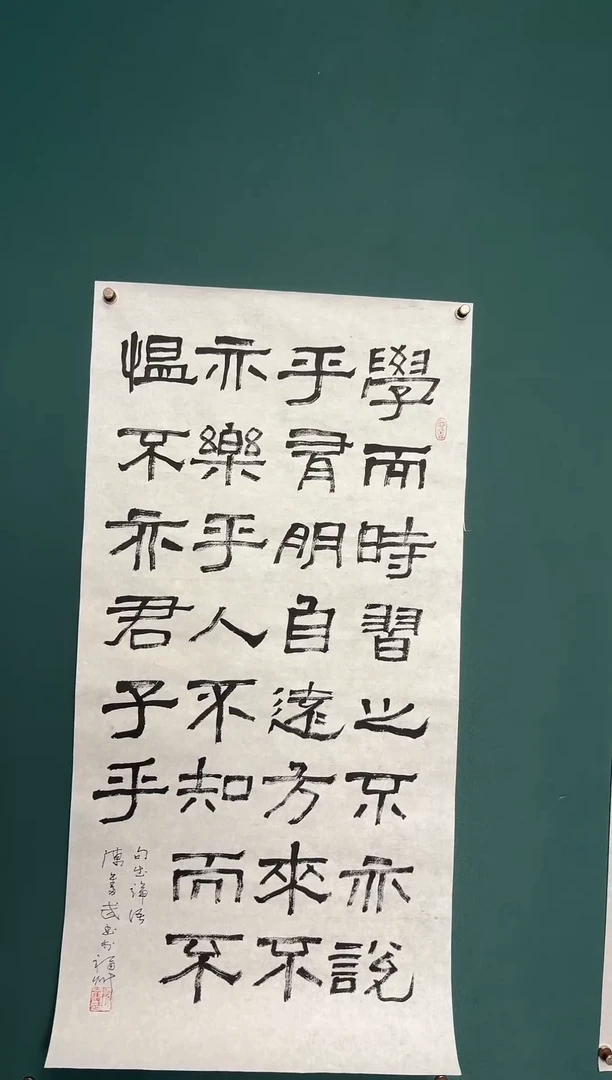 學而時習之不亦說
乎有朋自遠方來不
亦樂乎人不知而不
愠不亦君子乎
句出論語
武書於福州